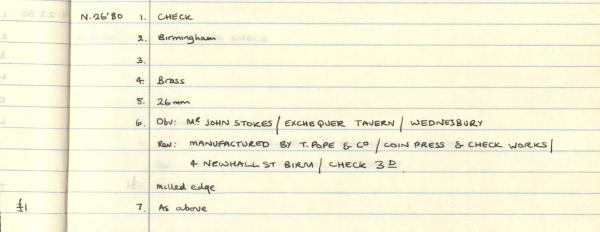 N.26'80 1. CHECK
2. Birmingham
3.
4. Brass
5. 26mm
6. Obv: Mr JOHN STOKES / EXCHEQUER TAVERN / WEDNESBURY
Rev: MANUFACTURED BY T. POPE & Co / COIN PRESS & CHECK WORKS /
4 NEWHALL ST BIRM / CHECK 3D.
milled edge
£1 7. As above